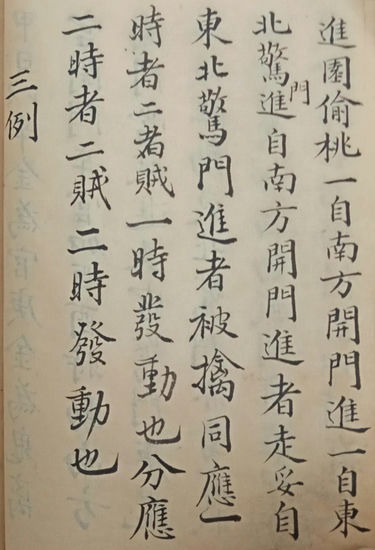 進園偷桃一自南方開門進一自東
北驚門進自南方開門進者走妥自
東北驚門進者被擒同應一
時者二者賊一時發動也分應
二時者二賊二時發動也
三例